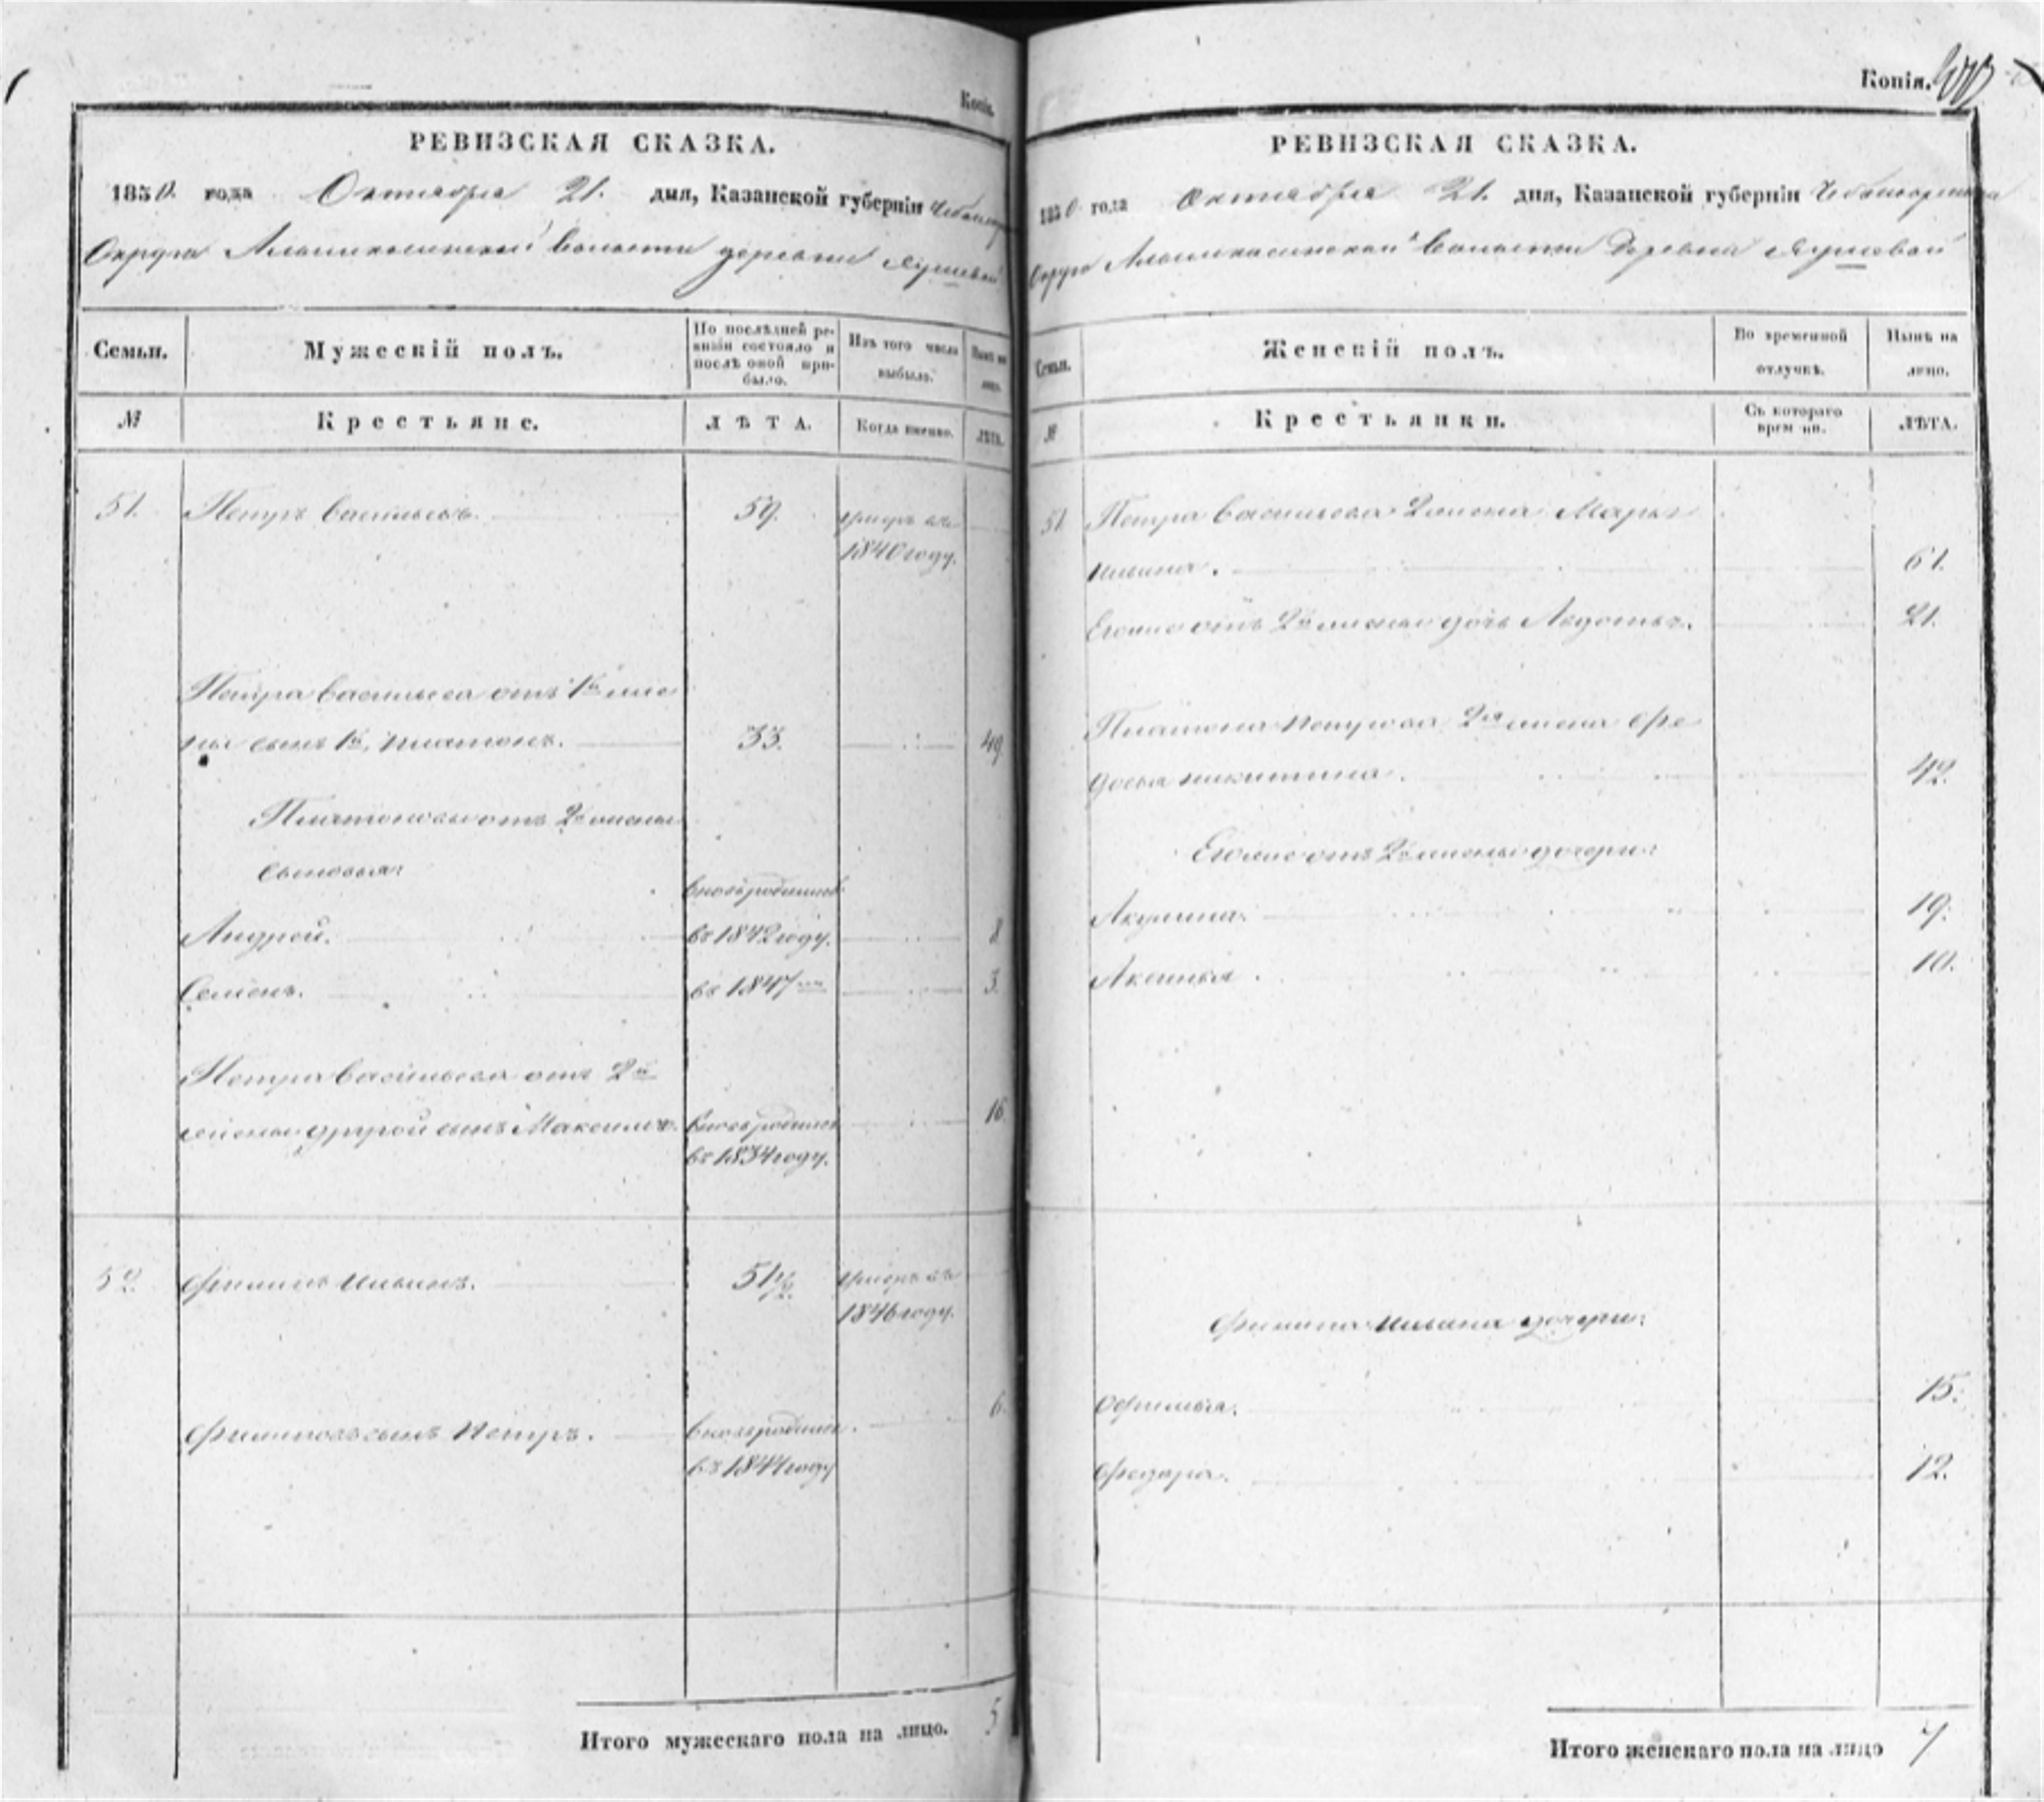 Копія.
РЕВИЗСКАЯ СКАЗКА.
1850. года Октября 21. дня, Казанской губерніи
Округа Алымкасинской Волости деревни Яушевой
Семьи. Мужескій полъ. По послѣдней ревизіи состояло и послѣ оной прибыло. Изъ того числа выбыло. Нынѣ на лицо.
№ Крестьяне. ЛѢТА. Когда именно. ЛѢТА.
51. Петръ Васильевъ. 59. умеръ въ
1840 году.
Петра Васильева отъ 1й же
ны сынъ 1й, Платонъ. 33. 49
Платоновы отъ 2й жены
сыновья:
вновь рожденъ
Андрей. въ 1842 году. 8
Семенъ. въ 1847 3.
Петра Васильева отъ 2й
жены другой сынъ Максимъ. вновь рожден 16
въ 1834 году.
52. Филипъ Ильинъ. 51½. умеръ въ
1846 году.
Филиповъ сынъ Петръ. вновь рожден 6.
въ 1844 году
Итого мужескаго пола на лицо. 5
Копія.
РЕВИЗСКАЯ СКАЗКА.
1850 года Октября 21. дня, Казанской губерніи Чебоксарскаго
Округа Алымкасинской Волости Деревни Яушевой
Семьи. Женскій полъ. Во временной отлучкѣ. Нынѣ на лицо.
№ Крестьянки. Съ котораго времени. ЛѢТА.
51. Петра Васильева 2 жена Марья
Ильина. 61.
Его же отъ 2й жены дочь Авдотья. 21.
Платона Петрова 2я жена Фе
досья Никитина. 42.
Его же отъ 2й жены дочери:
Акулина. 19.
Аксинья. 10.
Филипа Ильина дочери:
Офимья. 15.
Федора. 12.
Итого женскаго пола на лицо 7